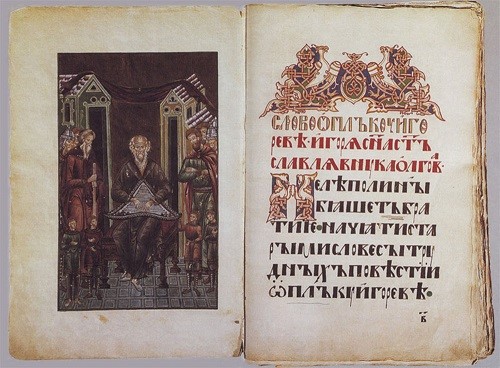 СЛОВО Ѡ ПЛЪКУ ИГО
РЕВѢ · ИГОРѦ СН҃А СТ҃Ъ
СЛАВЛѦ ВНУКА ОЛГОВА ·
НЕ ЛѢПО ЛИ НЫ
БѦШЕТЪ БРА
ТИЕ · НАЧАТИ СТА
РЫМИ СЛОВЕСЫ ТРУ
ДНЫХЪ ПОВѢСТІИ
Ѡ ПЛЪКУ ИГОРЕВѢ ·
В҃